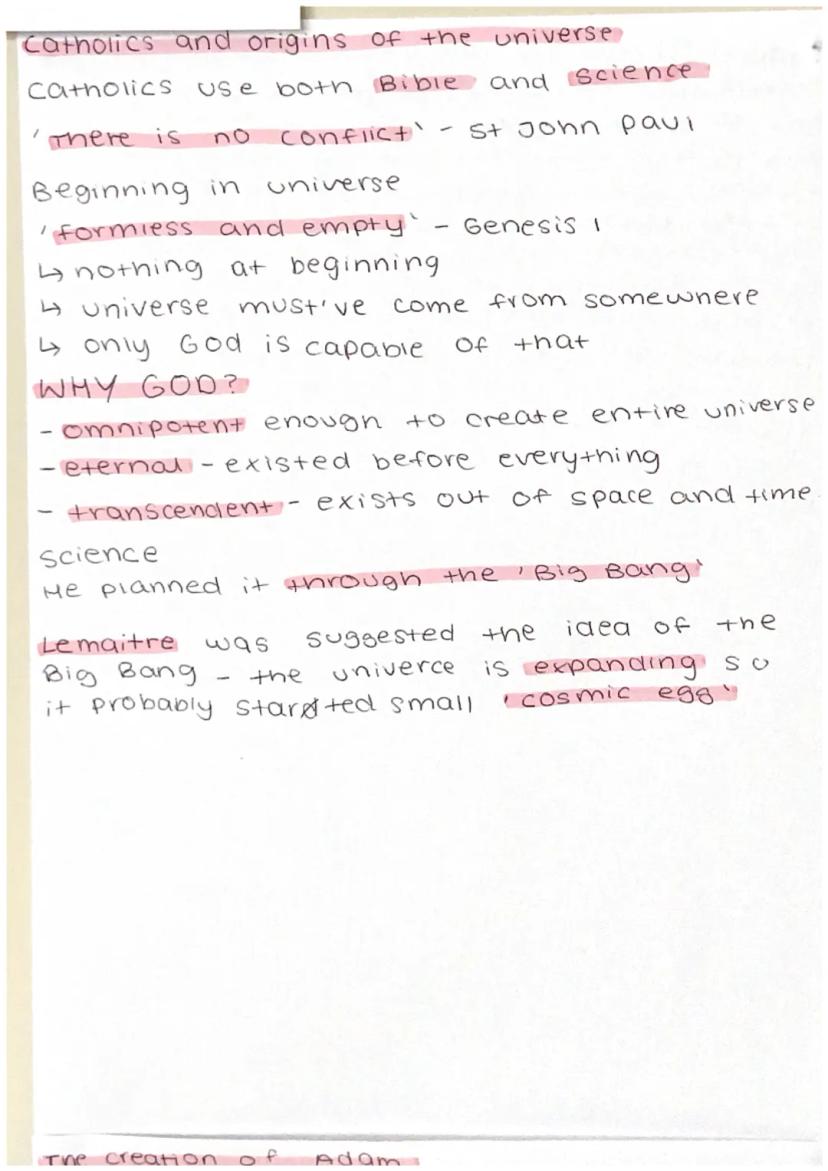 Catholics and origins of the universe
Catholics use both Bible and Science
'There is no conflict' - St John Paul
Beginning in universe
'formless and empty' - Genesis 1
↳ nothing at beginning
↳ universe must've come from somewhere
↳ only God is capable of that
WHY GOD?
- omnipotent enough to create entire universe
- eternal - existed before everything
- transcendent - exists out of space and time
Science
He planned it through the 'Big Bang'
Lemaitre was suggested the idea of the
Big Bang - the univerce is expanding so
it probably started small 'cosmic egg'
The creation of Adam